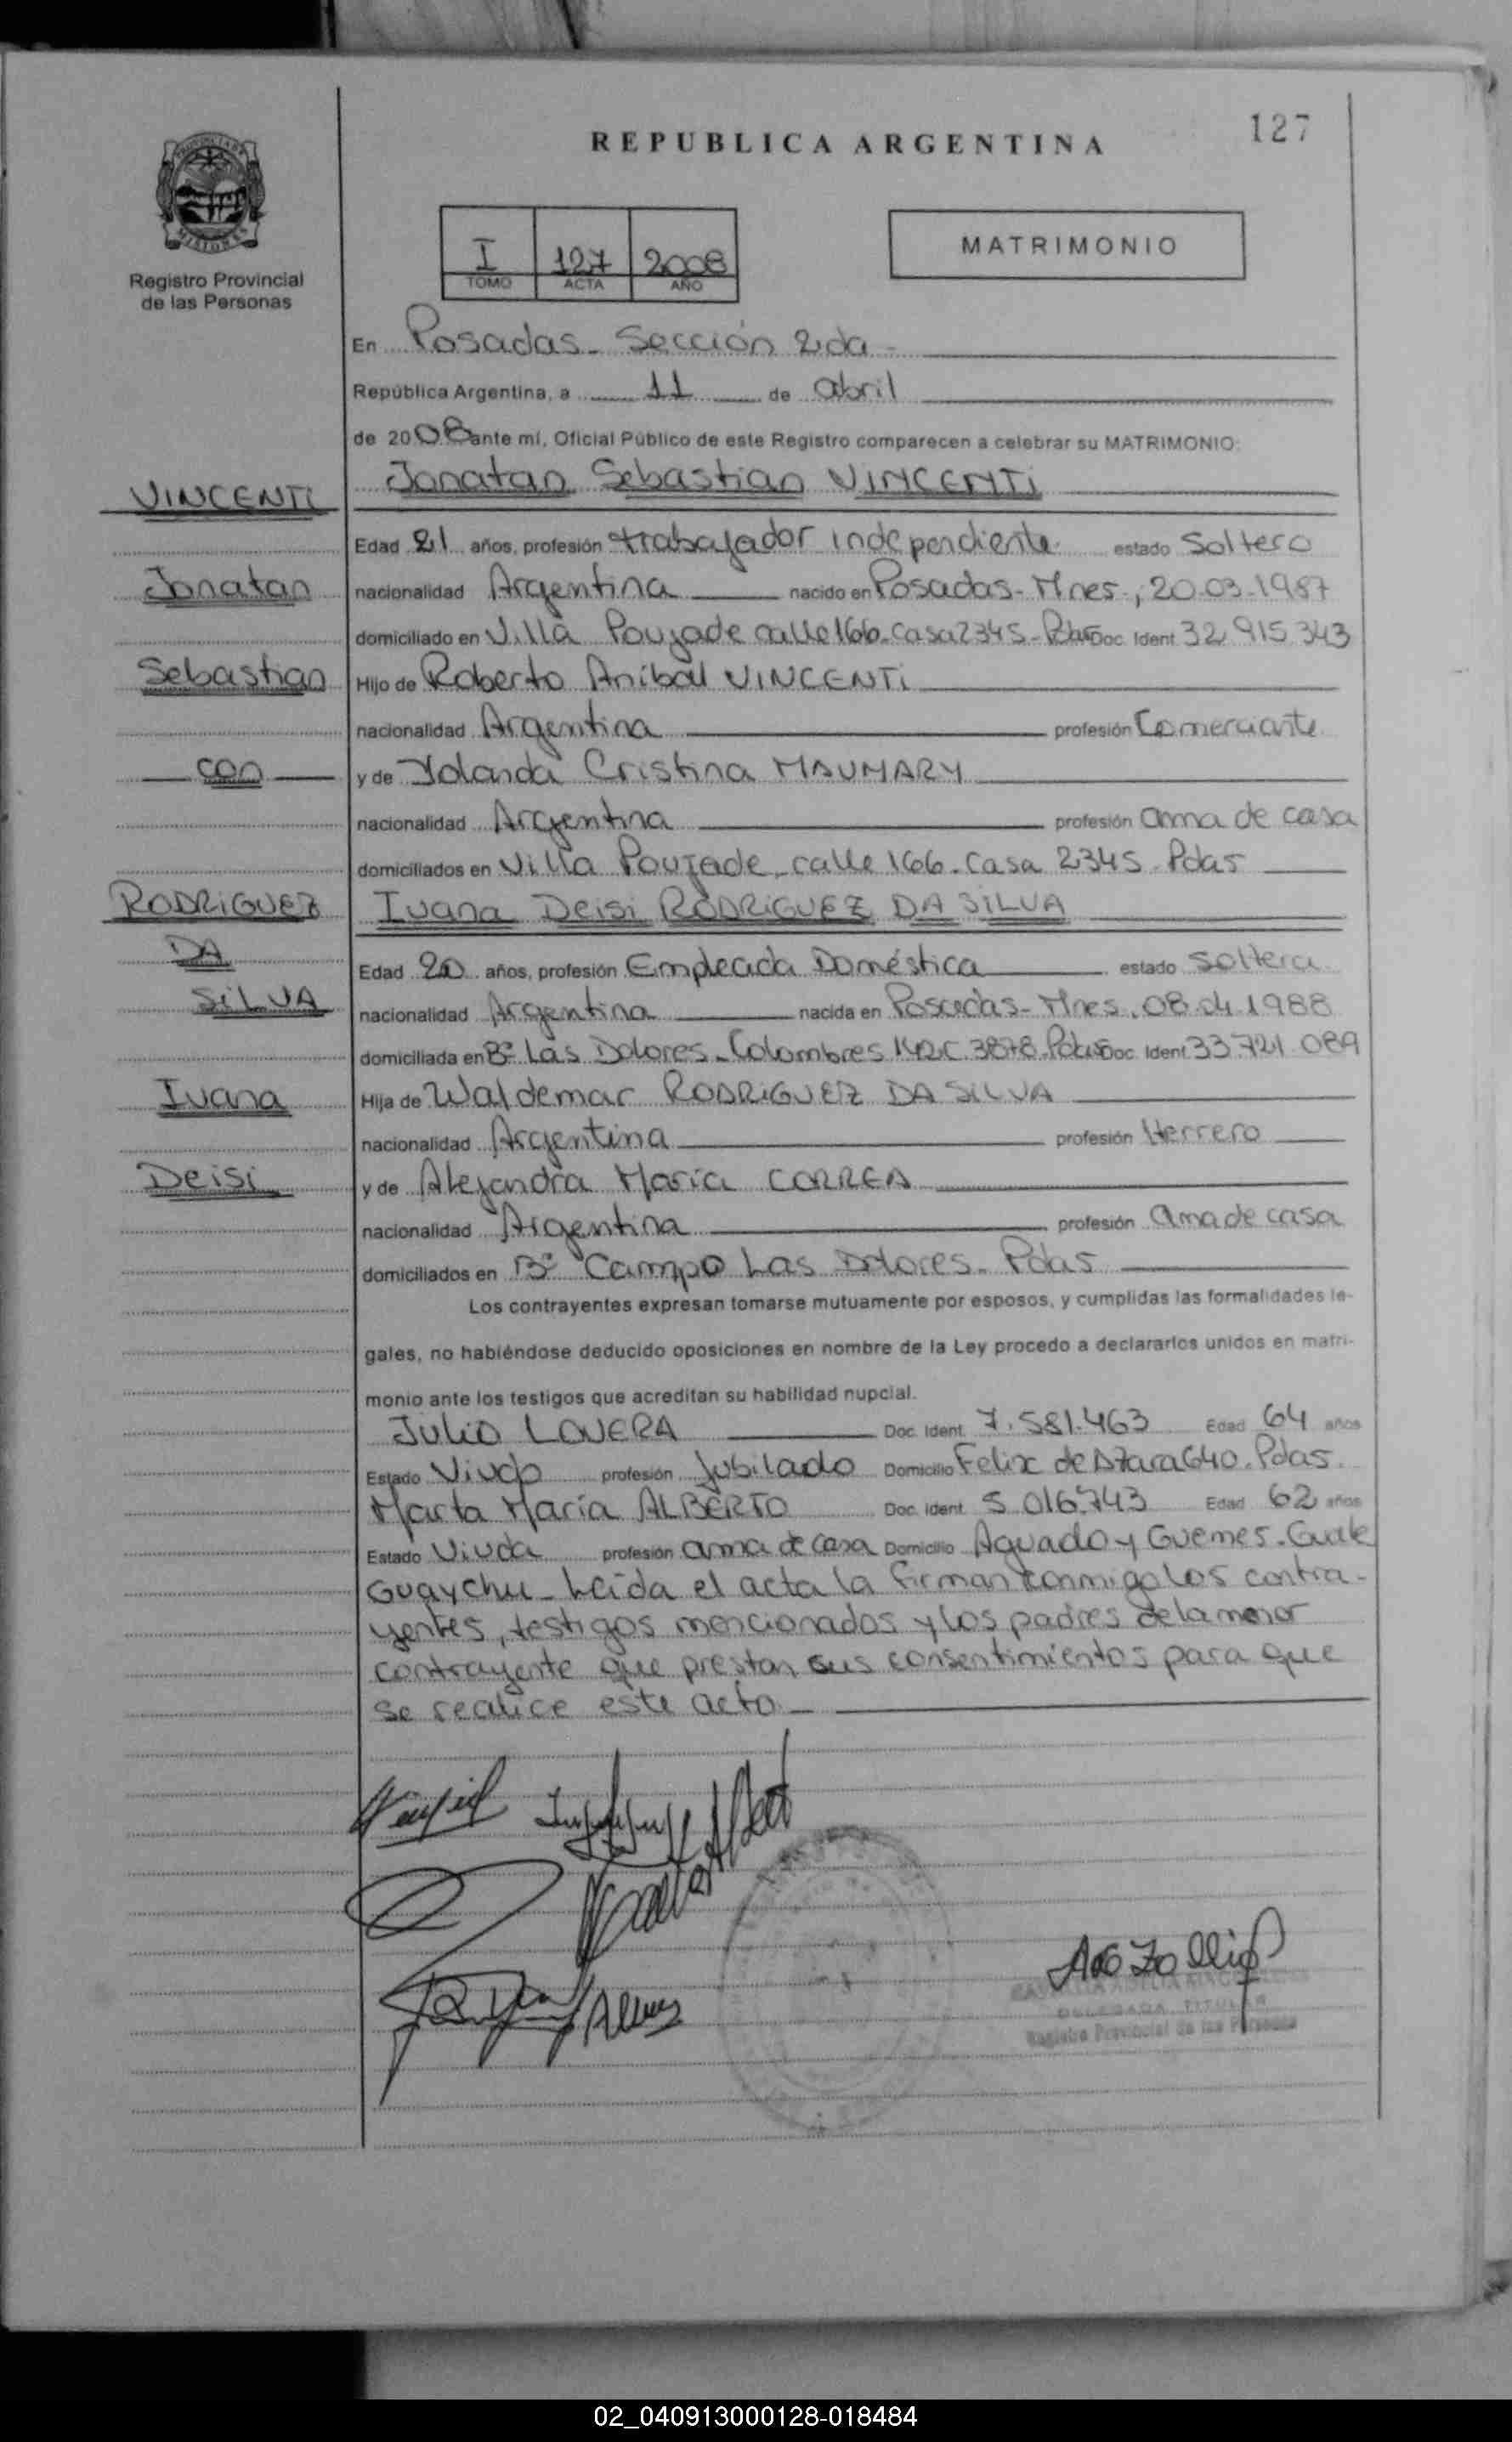 127
REPUBLICA ARGENTINA
PROVINCIA DE MISIONES
Registro Provincial
de las Personas
I 127 2008
TOMO ACTA AÑO
MATRIMONIO
En Posadas - Sección 2da -
República Argentina, a 11 de abril
de 2008 ante mí, Oficial Público de este Registro comparecen a celebrar su MATRIMONIO:
VINCENTI Jonatan Sebastian VINCENTI
Edad 21 años, profesión trabajador independiente estado Soltero
Jonatan nacionalidad Argentina nacido en Posadas - Mnes -, 20-03-1987
domiciliado en Villa Poujade calle 166 - Casa 2345 - Pdas Doc. Ident. 32.915.343
Sebastian Hijo de Roberto Anibal VINCENTI
nacionalidad Argentina profesión Comerciante
con y de Yolanda Cristina MAUMARY
nacionalidad Argentina profesión ama de casa
domiciliados en Villa Poujade - calle 166 - Casa 2345 - Pdas
RODRiGUEZ Ivana Deisi RODRiGUEZ DA SiLVA
DA Edad 20 años, profesión Empleada Doméstica estado Soltera
SiLVA nacionalidad Argentina nacida en Posadas - Mnes. 08.04.1988
domiciliada en Bº Las Dolores - Colombres 3878 - Pdas Doc. Ident. 33.721.089
Ivana Hija de Waldemar RODRiGUEZ DA SiLVA
nacionalidad Argentina profesión Herrero
Deisi y de Alejandra María CORREA
nacionalidad Argentina profesión ama de casa
domiciliados en Bº Campo Las Dolores - Pdas
Los contrayentes expresan tomarse mutuamente por esposos, y cumplidas las formalidades le-
gales, no habiéndose deducido oposiciones en nombre de la Ley procedo a declararlos unidos en matri-
monio ante los testigos que acreditan su habilidad nupcial.
Julio LOVERA Doc. Ident. 7.581.463 Edad 64 años
Estado Viudo profesión Jubilado Domicilio Felix de Azara 640 - Pdas.
Marta María ALBERTO Doc. Ident. 5.016.743 Edad 62 años
Estado Viuda profesión ama de casa Domicilio Aguado y Guemes - Guale
Guaychu - Leída el acta la firman conmigo los contra-
yentes, testigos mencionados y los padres de la menor
contrayente que prestan sus consentimientos para que
se realice este acto -
DELEGADA TITULAR
Registro Provincial de las Personas
02_040913000128-018484